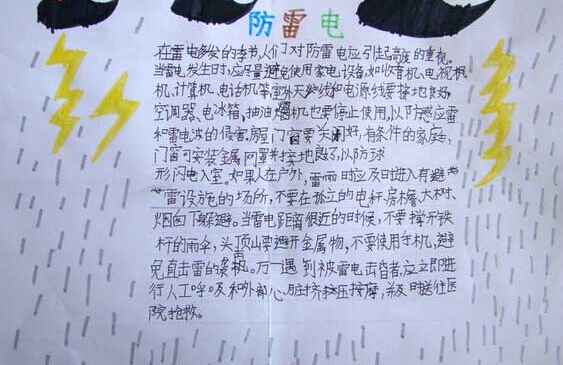 防雷电
在雷电多发的季节,人们对防雷电应引起高度的重视。
当雷电发生时,应尽量避免使用家电设备,如收音机、电视机
机、计算机、电话机等室外天线和电源线要接地良好,
空调器、电冰箱,抽油烟机也要停止使用,以防感应雷
和雷电波的侵害。房屋门窗要关闭好,有条件的家庭,
门窗可安装金属网罩并接地,以防球
形闪电入室。如果人在户外,雷雨时应及时进入有避
雷设施的场所,不要在孤立的电杆、房檐、大树、
烟囱下躲避。当雷电距离很近的时候,不要撑开铁
杆的雨伞,头顶上要避开金属物,不要使用手机,避
免直击雷的袭击。万一遇到被雷电击昏者,应立即进
行人工呼吸和外部心脏挤压按摩,并及时送往医
院抢救。